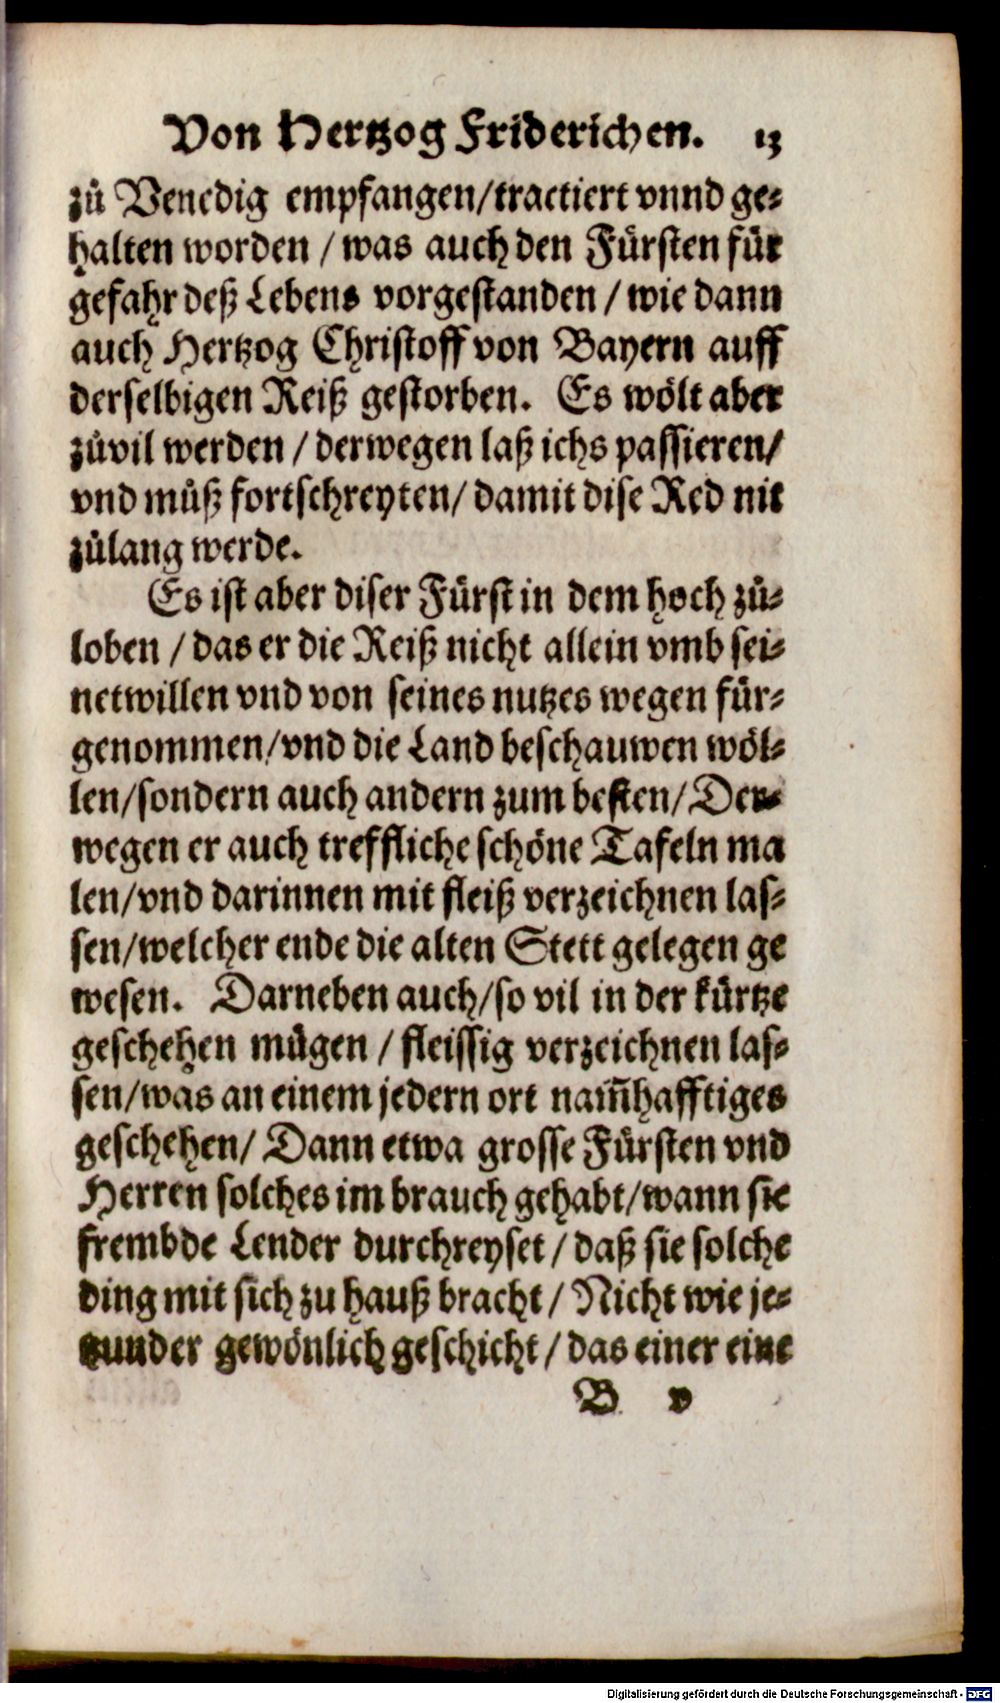 Von Hertzog Friderichen. 13
zů Venedig empfangen/tractiert vnnd ge⸗
halten worden / was auch den Fürsten für
gefahr deß Lebens vorgestanden / wie dann
auch Hertzog Christoff von Bayern auff
derselbigen Reiß gestorben. Es wölt aber
zůvil werden / derwegen laß ichs passieren/
vnd můß fortschreyten/ damit dise Red nit
zůlang werde.
Es ist aber diser Fürst in dem hoch zů⸗
loben / das er die Reiß nicht allein vmb sei⸗
netwillen vnd von seines nutzes wegen für⸗
genommen/vnd die Land beschauwen wöl⸗
len/sondern auch andern zum besten/ Der⸗
wegen er auch treffliche schöne Tafeln ma
len/vnd darinnen mit fleiß verzeichnen las⸗
sen/welcher ende die alten Stett gelegen ge
wesen. Darneben auch/so vil in der kürtze
geschehen mügen / fleissig verzeichnen las⸗
sen/was an einem jedern ort nam̃hafftiges
geschehen/ Dann etwa grosse Fürsten vnd
Herren solches im brauch gehabt/wann sie
frembde Lender durchreyset / daß sie solche
ding mit sich zu hauß bracht / Nicht wie je⸗
tzunder gewönlich geschicht / das einer eine
B v
Digitalisierung gefördert durch die Deutsche Forschungsgemeinschaft - DFG